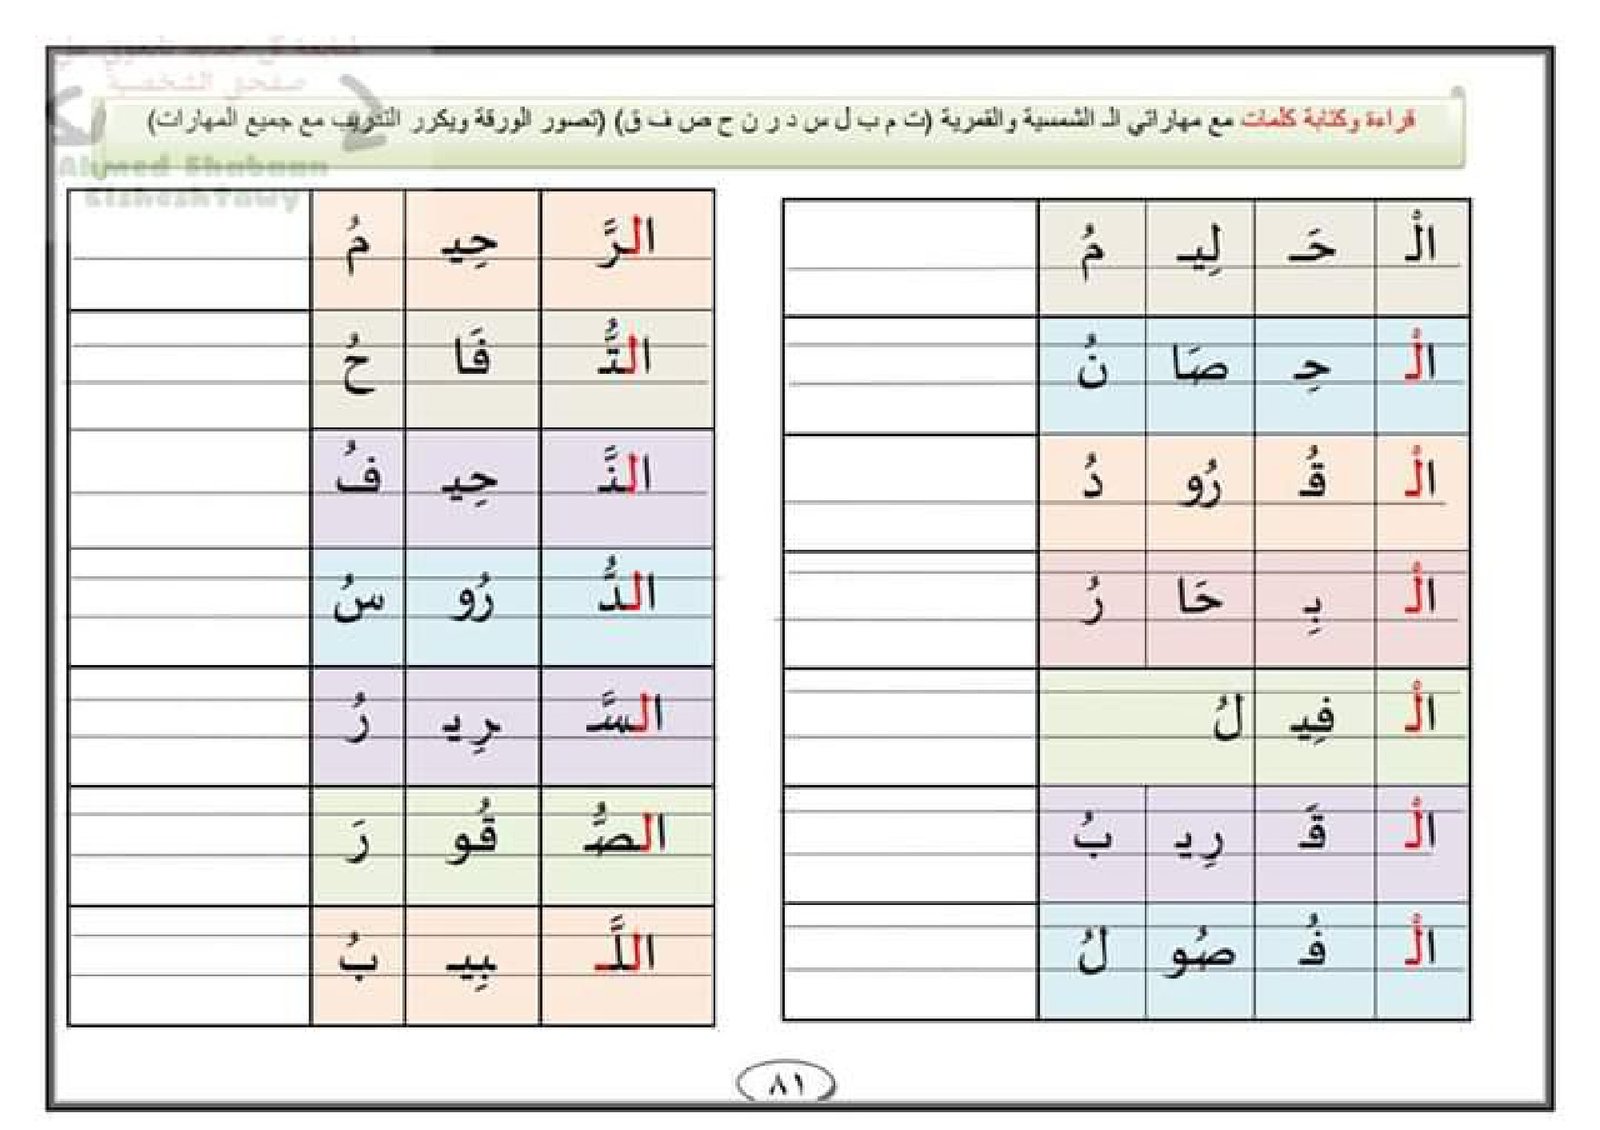 قراءة وكتابة كلمات مع مهاراتي الـ الشمسية والقمرية (ت م ب ل س د ر ن ح ص ف ق) (تصور الورقة ويكرر التدريب مع جميع المهارات)
Ahmed Shabaan
Elsheshtawy
الْـ حَـ لِيـ مُ
الْـ حِـ صَا نُ
الْـ قُـ رُو دُ
الْـ بِـ حَا رُ
الْـ فِيـ لُ
الْـ قَـ رِيـ بُ
الْـ فُـ صُو لُ
الرَّ حِيـ مُ
التُّـ فَا حُ
النَّـ حِيـ فُ
الدُّ رُو سُ
السَّـ رِيـ رُ
الصُّـ قُو رَ
اللَّـ بِيـ بُ
٨١